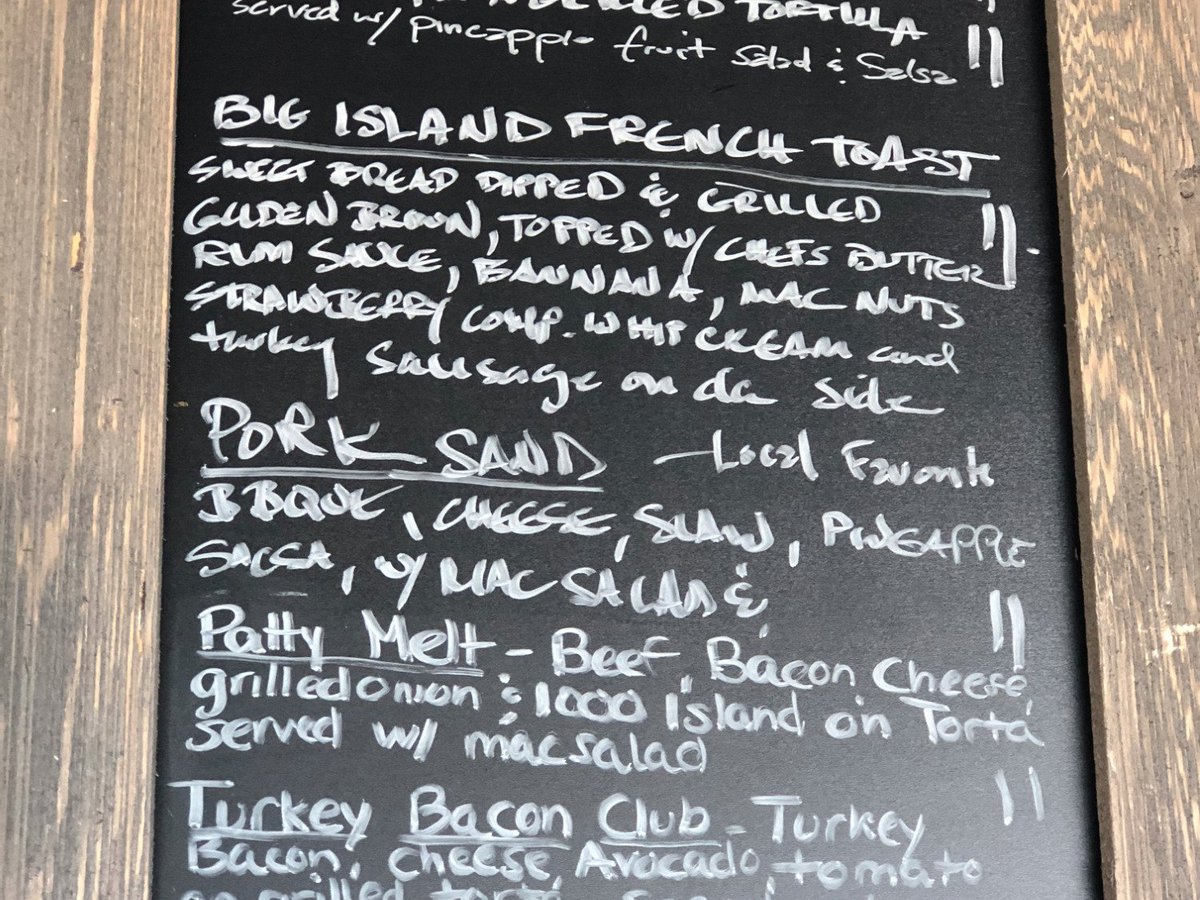 TORTILLA
served w/ pineapple fruit salad & Salsa 11
BIG ISLAND FRENCH TOAST
SWEET BREAD DIPPED & GRILLED
GOLDEN BROWN, TOPPED w/ CHEFS BUTTER 11.
RUM SAUCE, BANNANA, MAC NUTS
STRAWBERRY COMP. WHIP CREAM and
turkey Sausage on da side
PORK SAND - Local Favorite
BBQUE, CHEESE, SLAW, PINEAPPLE
SALSA, w/ MAC SALAD & 11
Patty Melt - Beef, Bacon, Cheese,
grilled onion & 1000 Island on Torta
served w/ macsalad
Turkey Bacon Club - Turkey 11
Bacon, cheese, Avocado, tomato
grilled torta